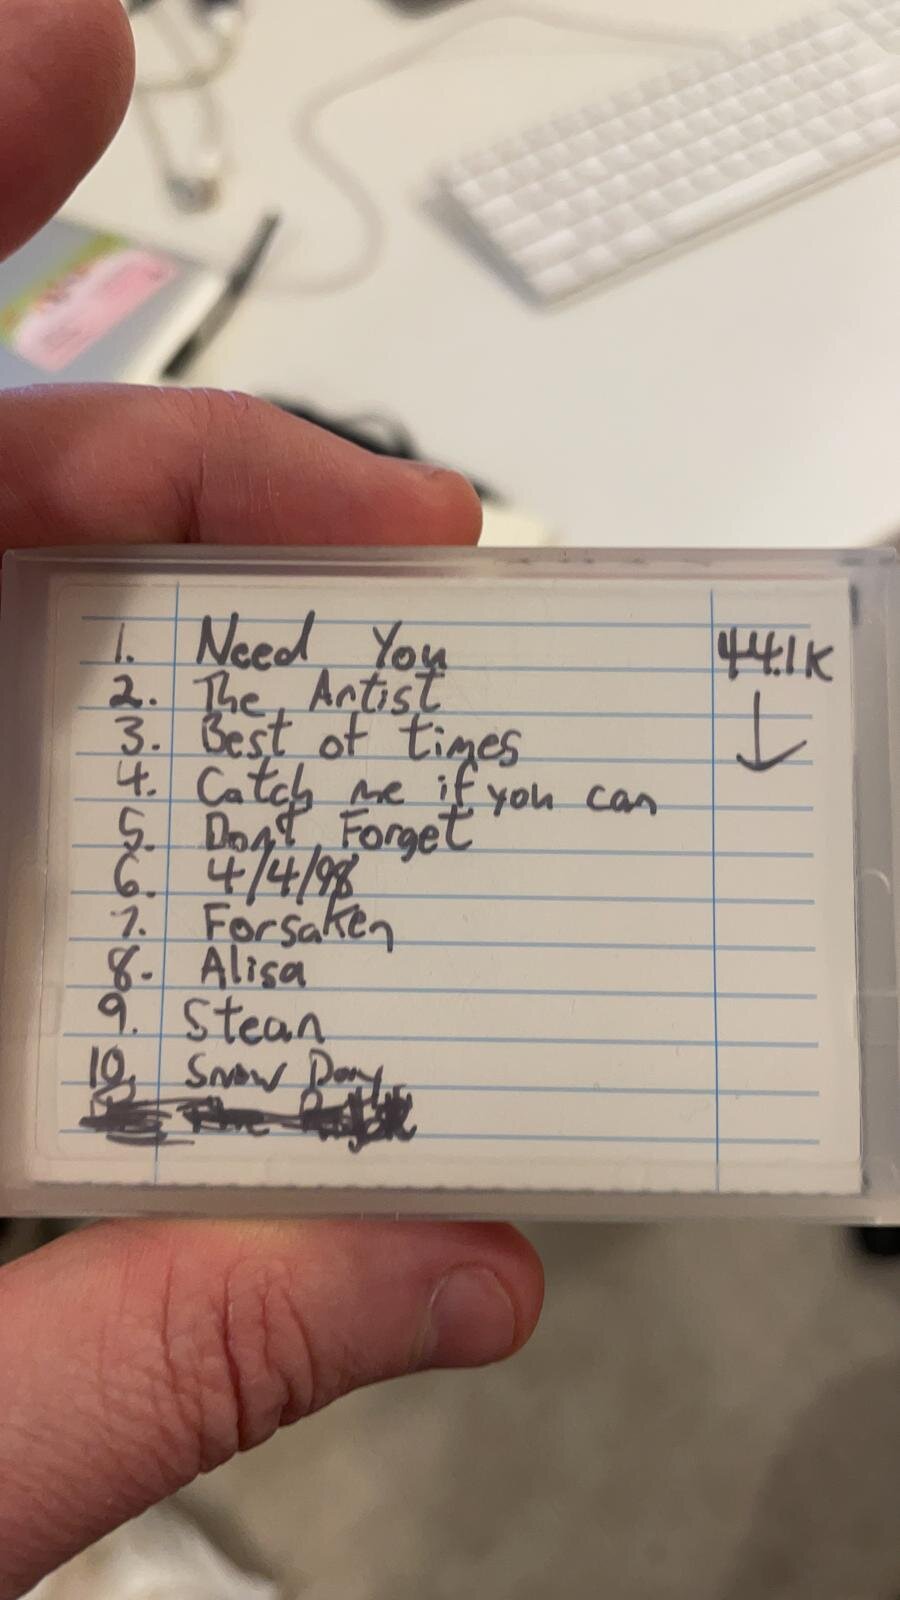 1. Need You 44.1K
2. The Artist
3. Best of times
4. Catch me if you can
5. Dont Forget
6. 4/4/98
7. Forsaken
8. Alisa
9. Stean
10. Snow Day